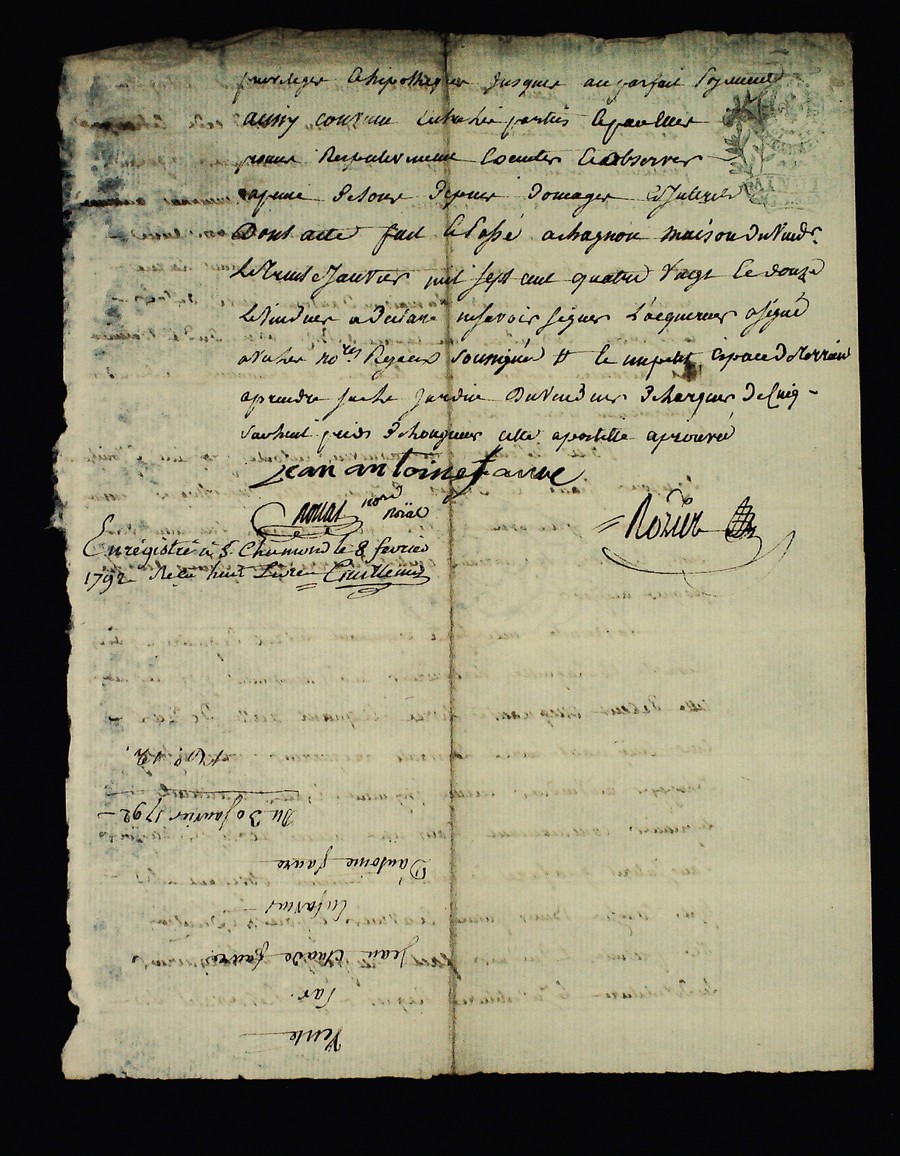 privileges & hipotheques Jusques au parfait payement
ainsy convenu entre les parties
promis Respectivement Executer & observer
apeine detous depens domages & Interets
Dont acte fait & Passé achagnon maison duvend.r
le Trente Janvier mil sept cent quatre vingt & douze
levendeur a declaré nesavoir signer L'acquereur asigné
avec les no.res Royaux soussignés # & un petit espace de terrain
aprendre sur le jardin duvendeur de largeur de Cinq
surhuit pieds de longueur cette apostille aprouvé
jean antoine faure
Rouas no.re Roïal
Rozier
Enrégistré à S. Chamond le 8 fevrier
1792 Reçu huit Livres
Vente
Par
Jean Claude faure
Enfaveur
D'antoine faure
Du 30 Janvier 1792